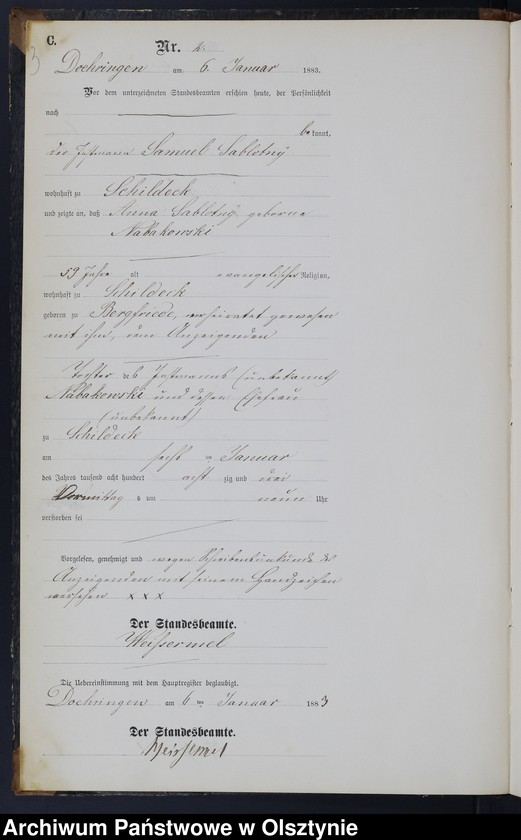 C.
3
Nr. 4.
Doehringen am 6. Januar 1883.
Vor dem unterzeichneten Standesbeamten erschien heute, der Persönlichkeit
nach
be kannt,
der Instmann Samuel Sablotny
wohnhaft zu Schildeck
und zeigte an, daß Anna Sablotny geborne
Nabakowski
59 Jahre alt evangelischer Religion,
wohnhaft zu Schildeck
geboren zu Bergfriede, verheirathet gewesen
mit ihm, dem Anzeigenden
Tochter des Instmanns (unbekannt)
Nabakowski und dessen Ehefrau
(unbekannt)
zu Schildeck
am sechs ten Januar
des Jahres tausend acht hundert acht zig und drei
Vormittag s um neun Uhr
verstorben sei
Vorgelesen, genehmigt und wegen Schreibensunkunde des
Anzeigenden mit seinem Handzeichen
versehen x x x
Der Standesbeamte.
Weissermel
Die Uebereinstimmung mit dem Hauptregister beglaubigt.
Doehringen am 6 ten Januar 1883
Der Standesbeamte.
Weissermel
Archiwum Państwowe w Olsztynie